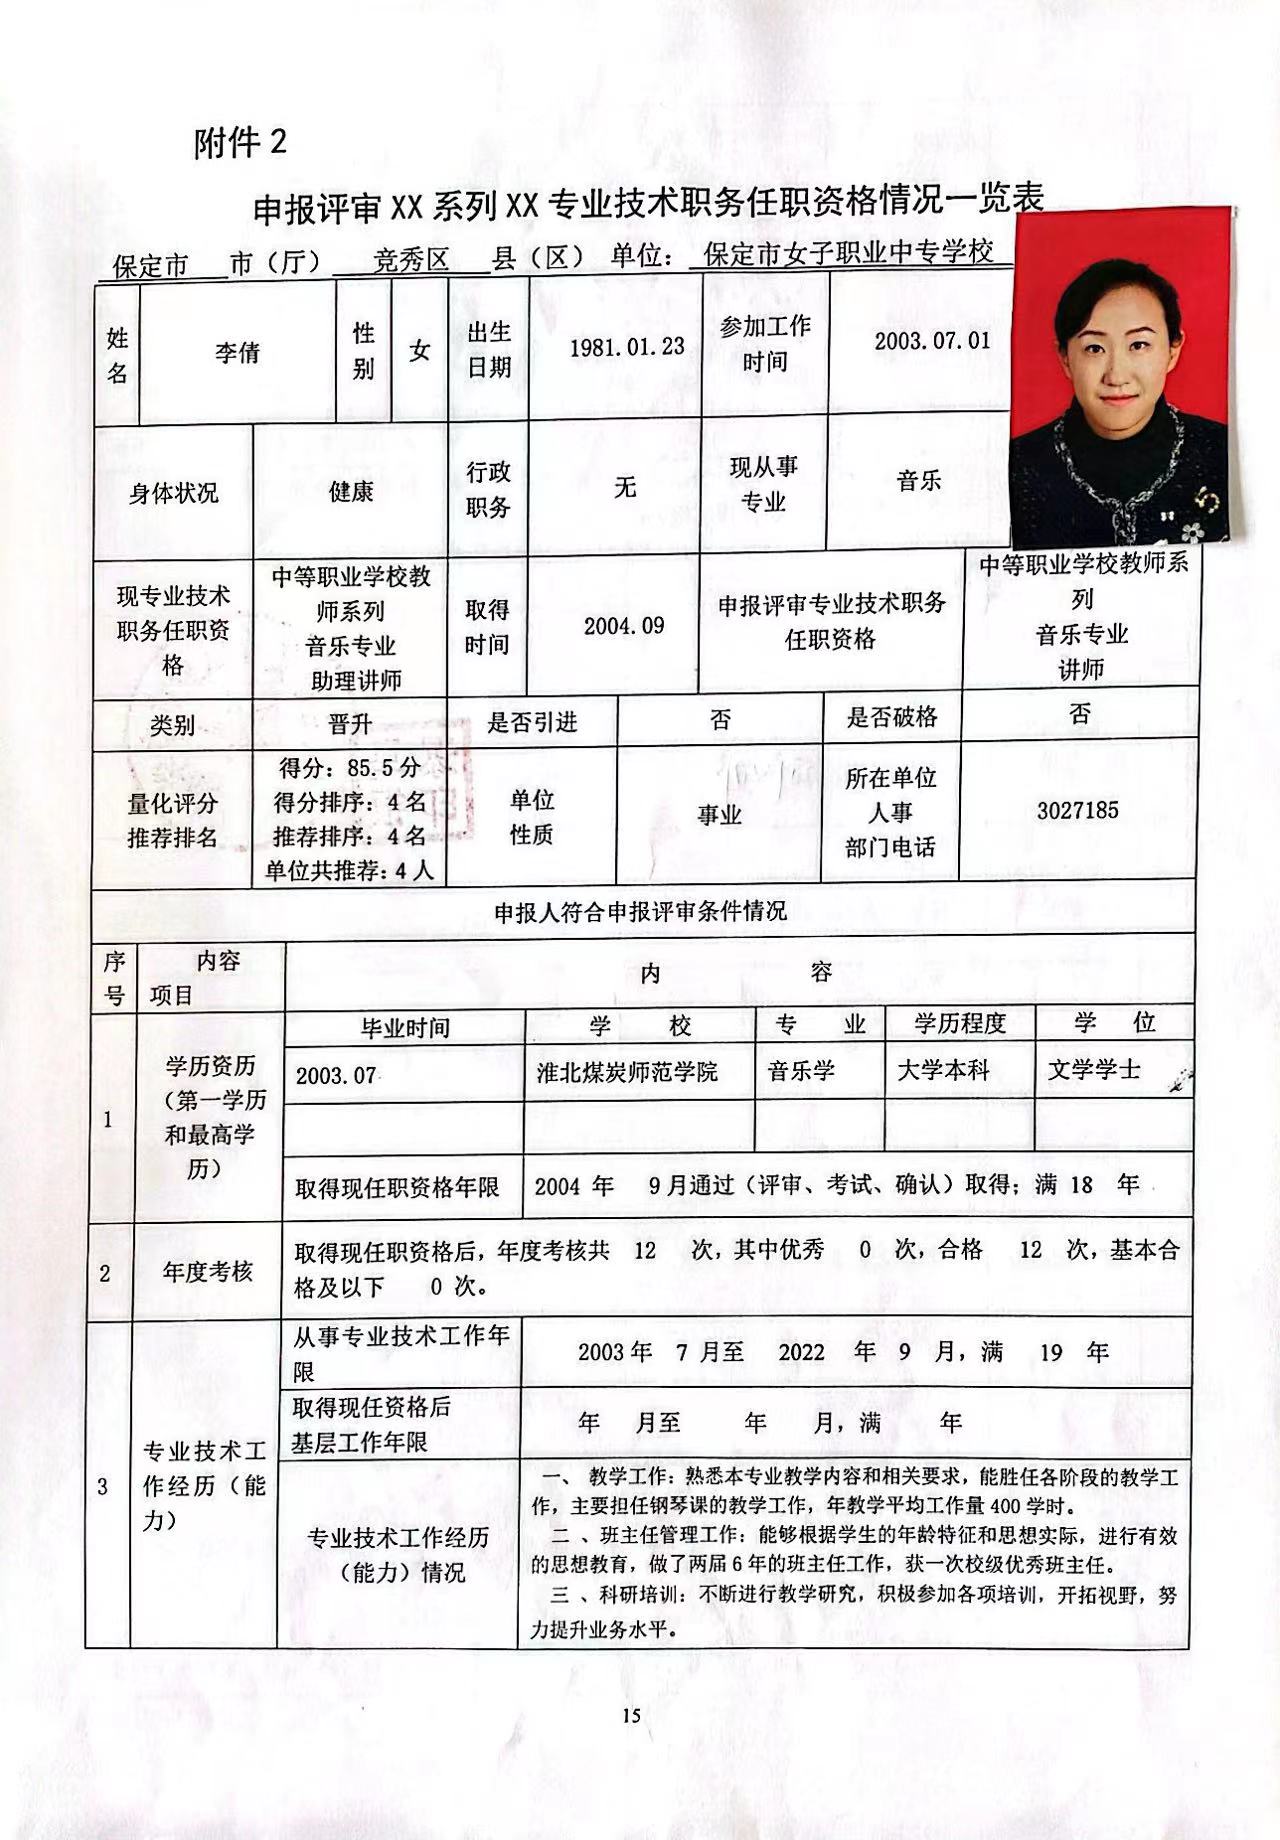 附件2
申报评审XX系列XX专业技术职务任职资格情况一览表
保定市 市（厅） 竞秀区 县（区） 单位： 保定市女子职业中专学校
姓名 李倩 性别 女 出生日期 1981.01.23 参加工作时间 2003.07.01
身体状况 健康 行政职务 无 现从事专业 音乐
现专业技术职务任职资格 中等职业学校教师系列音乐专业助理讲师 取得时间 2004.09 申报评审专业技术职务任职资格 中等职业学校教师系列音乐专业讲师
类别 晋升 是否引进 否 是否破格 否
量化评分推荐排名
得分：85.5分
得分排序：4名
推荐排序：4名
单位共推荐：4人
单位性质 事业 所在单位人事部门电话 3027185
申报人符合申报评审条件情况
序号 内容 项目 内 容
1 学历资历（第一学历和最高学历）
毕业时间 学 校 专 业 学历程度 学 位
2003.07 淮北煤炭师范学院 音乐学 大学本科 文学学士
取得现任职资格年限 2004 年 9月通过（评审、考试、确认）取得；满 18 年
2 年度考核
取得现任职资格后，年度考核共 12 次，其中优秀 0 次，合格 12 次，基本合
格及以下 0 次。
3 专业技术工作经历（能力）
从事专业技术工作年限 2003年 7 月至 2022 年 9 月，满 19 年
取得现任资格后基层工作年限 年 月至 年 月，满 年
专业技术工作经历（能力）情况
一、 教学工作：熟悉本专业教学内容和相关要求，能胜任各阶段的教学工
作，主要担任钢琴课的教学工作，年教学平均工作量400学时。
二 、班主任管理工作：能够根据学生的年龄特征和思想实际，进行有效
的思想教育，做了两届6年的班主任工作，获一次校级优秀班主任。
三 、科研培训：不断进行教学研究，积极参加各项培训，开拓视野，努
力提升业务水平。
15